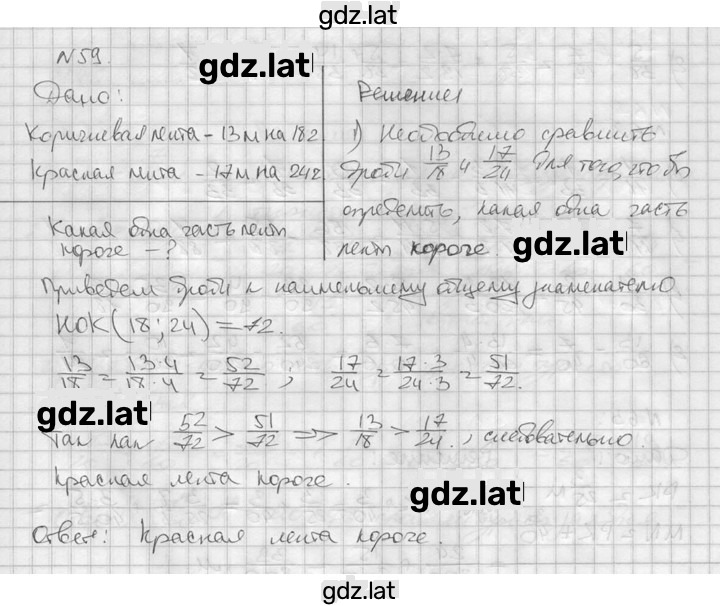 gdz.lat
N59.
gdz.lat
Дано:
Решение
Коричневая лента - 13м на 18г
Красная лента - 17м на 24г
1) Необходимо сравнить
дроби 13/18 и 17/24 для того, что бы
определить, какая одна часть
лент короче.
Какая одна часть лент
короче - ?
gdz.lat
Приведем дроби к наименьшему общему знаменателю
НОК(18;24)=72.
13/18 = 13·4/18·4 = 52/72 ; 17/24 = 17·3/24·3 = 51/72.
gdz.lat
Так как 52/72 > 51/72 => 13/18 > 17/24., следовательно
Красная лента короче.
gdz.lat
Ответ: Красная лента короче.
gdz.lat